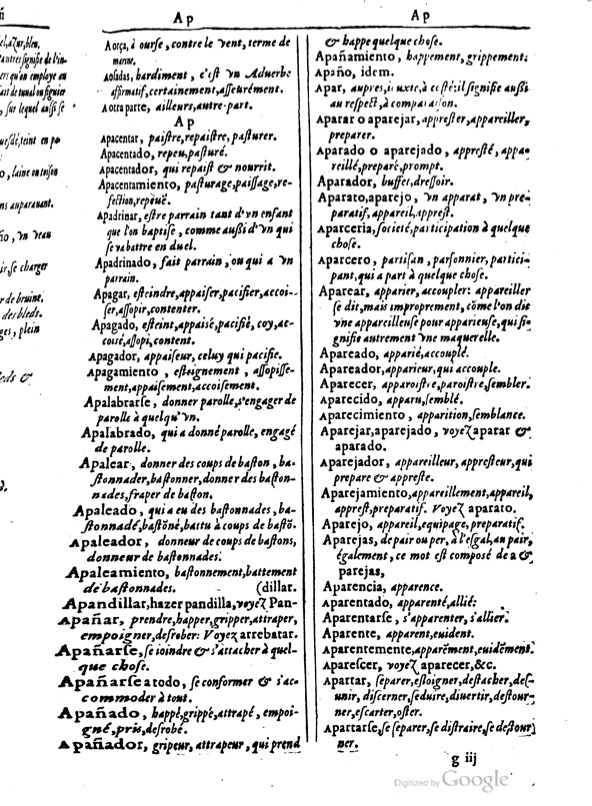 Ap
Aorça, à ourse, contre le vent, terme de
marine.
Aosadas, hardiment, c'est vn Aduerbe
affirmatif, certainement, asseurément.
Aotra parte, ailleurs, autre-part.
Ap
Apacentar, paistre, repaistre, pasturer.
Apacentado, repeu, pasturé.
Apacentador, qui repaist & nourrit.
Apacentamiento, pasturage, paissage, re-
fection, repeuë.
Apadrinar, estre parrain tant d'vn enfant
que l'on baptise, comme aussi d'vn qui
se va battre en duel.
Apadrinado, fait parrain, ou qui a vn
parrain.
Apagar, esteindre, appaiser, pacifier, accoi-
ser, assopir, contenter.
Apagado, esteint, appaisé, pacifié, coy, ac-
coisé, assopi, content.
Apagador, appaiseur, celuy qui pacifie.
Apagamiento, esteignement, assopisse-
ment, appaisement, accoisement.
Apalabrarse, donner parolle, s'engager de
parolle à quelqu'vn.
Apalabrado, qui a donné parolle, engagé
de parolle.
Apalear, donner des coups de baston, ba-
stonnader, bastonner, donner des baston-
nades, fraper de baston.
Apaleado, qui a eu des bastonnades, ba-
stonnadé, bastõné, battu à coups de bastõ.
Apaleador, donneur de coups de bastons,
donneur de bastonnades.
Apaleamiento, bastonnement, battement
de bastonnades. (dillar.
Apandillar, hazer pandilla, voyez Pan-
Apañar, prendre, happer, gripper, attraper,
empoigner, desrober: Voyez arrebatar.
Apañarse, se ioindre & s'attacher à quel-
que chose.
Apañarse a todo, se conformer & s'ac-
commoder à tout.
Apañado, happé, grippé, attrapé, empoi-
gné, pris, desrobé.
Apañador, gripeur, attrapeur, qui prend
Ap
& happe quelque chose.
Apañamiento, happement, grippement.
Apaño, idem.
Apar, aupres, iuxte, à costé: il signifie aussi
au respect, à comparaison.
Aparar o aparejar, apprester, appareiller,
preparer.
Aparado o aparejado, appresté, appa-
reillé, preparé, prompt.
Aparador, buffet, dressoir.
Aparato, aparejo, vn apparat, vn pre-
paratif, appareil, apprest.
Aparceria, societé, participation à quelque
chose.
Aparcero, partisan, parsonnier, partici-
pant, qui a part à quelque chose.
Aparear, apparier, accoupler: appareiller
se dit, mais improprement, cõme l'on dit
vne appareilleuse pour apparieuse, qui si-
gnifie autrement vne maquerelle.
Apareado, apparié, accouplé.
Apareador, apparieur, qui accouple.
Aparecer, apparoistre, paroistre, sembler.
Aparecido, apparu, semblé.
Aparecimiento, apparition, semblance.
Aparejar, aparejado, voyez aparar &
aparado.
Aparejador, appareilleur, appresteur, qui
prepare & appreste.
Aparejamiento, appareillement, appareil,
apprest, preparatif. Voyez aparato.
Aparejo, appareil, equipage, preparatif.
Aparejas, de pair ou per, à l'esgal, au pair,
également, ce mot est composé de a &
parejas,
Aparencia, apparence.
Aparentado, apparenté, allié:
Aparentarse, s'apparenter, s'allier.
Aparente, apparent, euident.
Aparentemente, apparẽment, euidẽment.
Aparescer, voyez aparecer, &c.
Apartar, separer, esloigner, destacher, des-
unir, discerner, seduire, diuertir, destour-
ner, escarter, oster.
Apartarse, se separer, se distraire, se destour
ner.
g iij
Digitized by Google